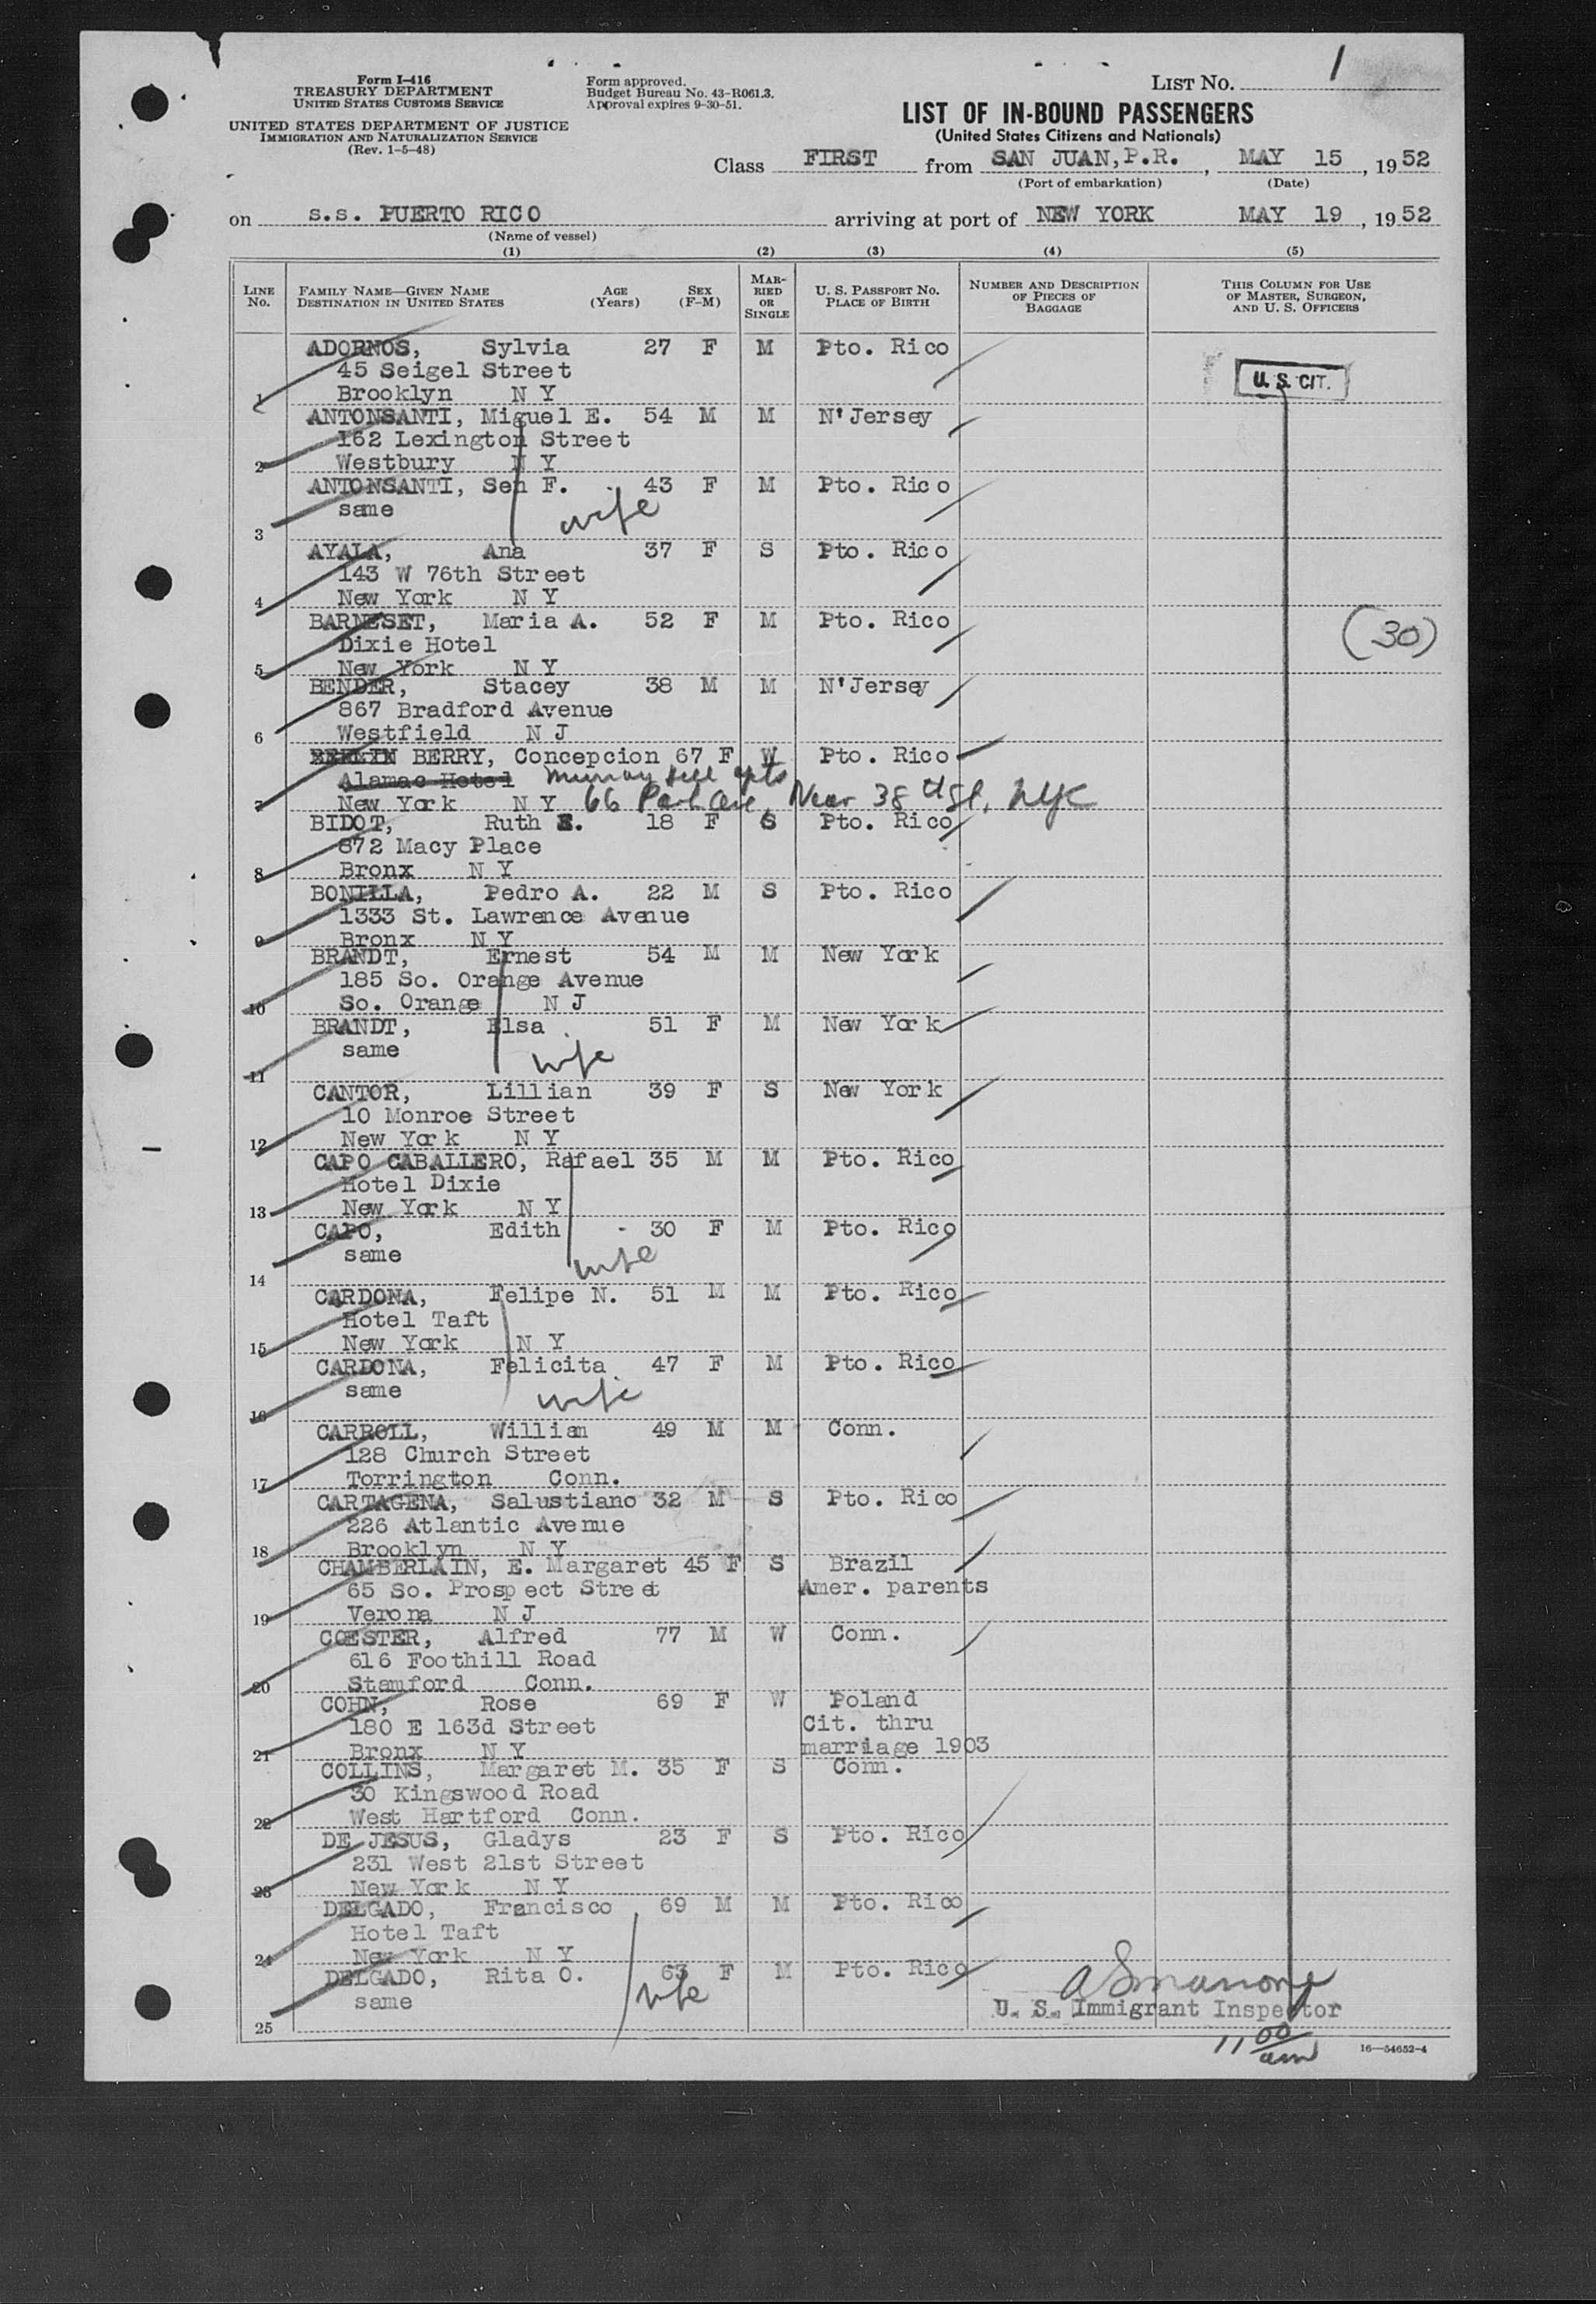 Form I-416
TREASURY DEPARTMENT
UNITED STATES CUSTOMS SERVICE
UNITED STATES DEPARTMENT OF JUSTICE
IMMIGRATION AND NATURALIZATION SERVICE
(Rev. 1-5-48)
Form approved.
Budget Bureau No. 43-R061.3.
Approval expires 9-30-51.
LIST NO. 1
LIST OF IN-BOUND PASSENGERS
(United States Citizens and Nationals)
Class FIRST from SAN JUAN, P.R., MAY 15, 1952
(Port of embarkation) (Date)
on s.s. PUERTO RICO arriving at port of NEW YORK MAY 19, 1952
(Name of vessel)
(1) (2) (3) (4) (5)
LINE No. FAMILY NAME—GIVEN NAME DESTINATION IN UNITED STATES AGE (Years) SEX (F-M) MARRIED OR SINGLE U. S. PASSPORT NO. PLACE OF BIRTH NUMBER AND DESCRIPTION OF PIECES OF BAGGAGE THIS COLUMN FOR USE OF MASTER, SURGEON, AND U. S. OFFICERS
ADORNOS, Sylvia 27 F M Pto. Rico
45 Seigel Street U. S. CIT.
1 Brooklyn N Y
ANTONSANTI, Miguel E. 54 M M N'Jersey
162 Lexington Street
2 Westbury N Y
ANTONSANTI, Sen F. 43 F M Pto. Rico
same wife
3
AYALA, Ana 37 F S Pto. Rico
143 W 76th Street
4 New York N Y
BARNESET, Maria A. 52 F M Pto. Rico
Dixie Hotel (30)
5 New York N Y
BENDER, Stacey 38 M M N'Jersey
867 Bradford Avenue
6 Westfield N J
BERRY, Concepcion 67 F W Pto. Rico
Alamac Hotel Murray Hill apts
7 New York N Y 66 Park Ave, Near 38th St. NYC
BIDOT, Ruth E. 18 F S Pto. Rico
872 Macy Place
8 Bronx N Y
BONILLA, Pedro A. 22 M S Pto. Rico
1333 St. Lawrence Avenue
9 Bronx N Y
BRANDT, Ernest 54 M M New York
185 So. Orange Avenue
10 So. Orange N J
BRANDT, Elsa 51 F M New York
same wife
11
CANTOR, Lillian 39 F S New York
10 Monroe Street
12 New York N Y
CAPO CABALLERO, Rafael 35 M M Pto. Rico
Hotel Dixie
13 New York N Y
CAPO, Edith 30 F M Pto. Rico
same wife
14
CARDONA, Felipe N. 51 M M Pto. Rico
Hotel Taft
15 New York N Y
CARDONA, Felicita 47 F M Pto. Rico
same wife
16
CARROLL, William 49 M M Conn.
128 Church Street
17 Torrington Conn.
CARTAGENA, Salustiano 32 M S Pto. Rico
226 Atlantic Avenue
18 Brooklyn N Y
CHAMBERLAIN, E. Margaret 45 F S Brazil
65 So. Prospect Street Amer. parents
19 Verona N J
COESTER, Alfred 77 M W Conn.
616 Foothill Road
20 Stamford Conn.
COHN, Rose 69 F W Poland
180 E 163d Street Cit. thru
21 Bronx N Y marriage 1903
COLLINS, Margaret M. 35 F S Conn.
30 Kingswood Road
22 West Hartford Conn.
DE JESUS, Gladys 23 F S Pto. Rico
231 West 21st Street
23 New York N Y
DELGADO, Francisco 69 M M Pto. Rico
Hotel Taft
24 New York N Y
DELGADO, Rita O. 63 F M Pto. Rico
same wife U. S. Immigrant Inspector
25
11 00 am
16—54652-4